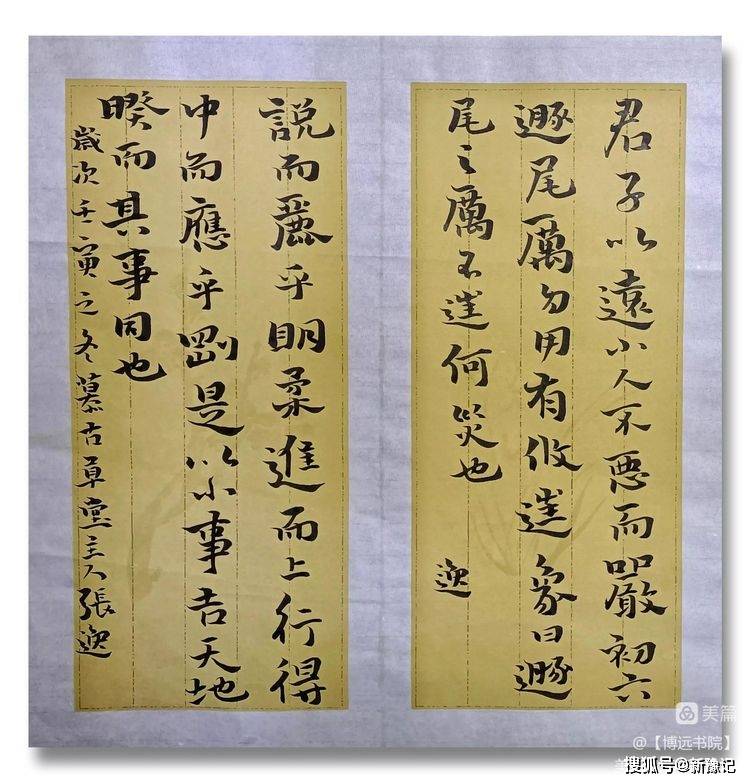 君子以遠小人不惡而嚴初六
遯尾厲勿用有攸往象曰遯
尾之厲不往何災也
逸
說而麗乎明柔進而上行得
中而應乎剛是以小事吉天地
睽而其事同也
歲次壬寅之冬慕古草堂主人張逸
美篇
@【博远书院】
搜狐号@新豫记